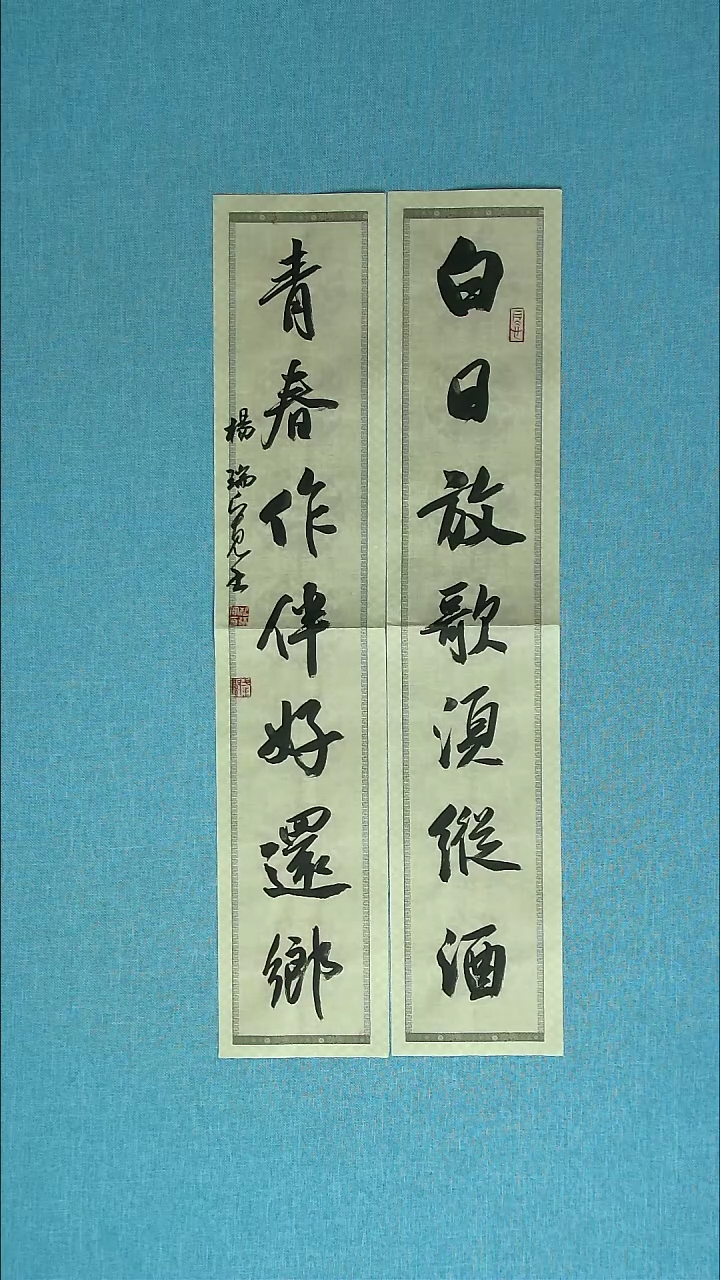 白日放歌須縱酒
青春作伴好還鄉
楊瑞